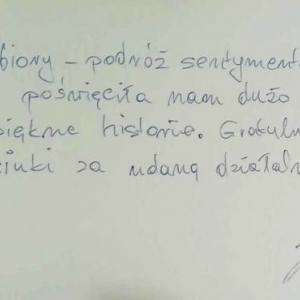 biony - podróż sentyment
poświęciła nam dużo
piękne historie. Gratulu
inki za udaną działaln